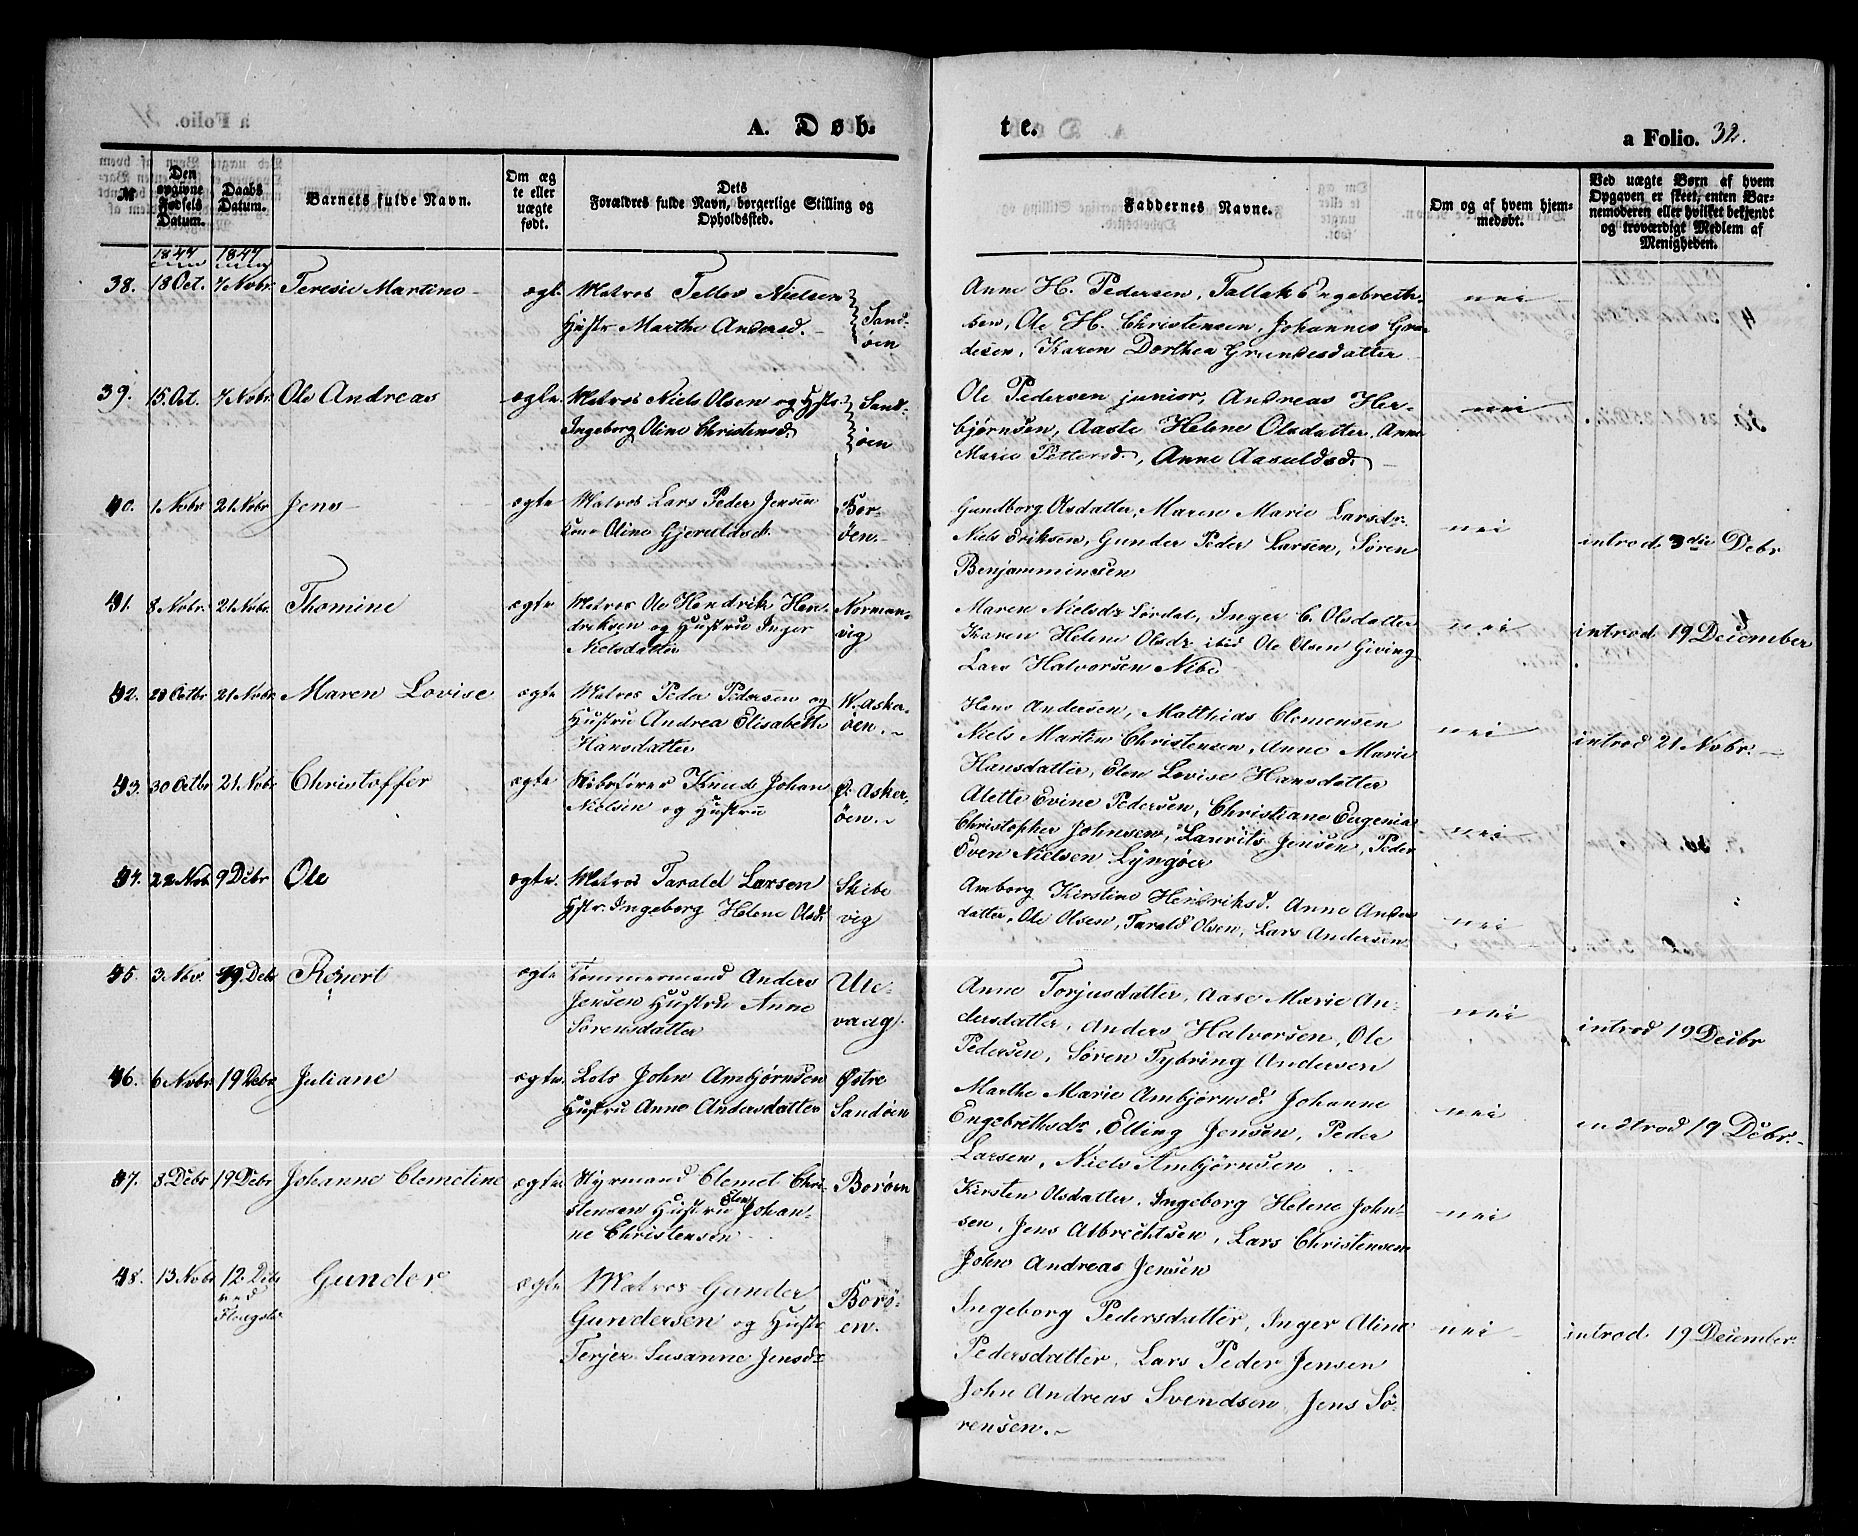 A. Døb-
te.
a Folio. 32.
№
Den opgivne Fødsels Datum.
Daabs Datum.
Barnets fulde Navn.
Om æg te eller uægte født.
Dets Forældres fulde Navn, borgerlige Stilling og Opholdssted.
Faddernes Navne.
Om og af hvem hjem- medøbt.
Ved uægte Børn af hvem Opgaven er skeet, enten Bar- nemoderen eller hvilket bekjendt og troværdigt Medlem af Menigheden.
1847 1847
38. 18 Oct. 7 Nobr. Teresie Martine ægt. Matros Tellev Nielsen
Hustr Marthe Andersd.
Sand-
øen
Anne H. Pedersen, Tallak Engebreth-
sen, Ole H. Christensen, Johannes Gru-
desen, Karen Dorthea Grundesdatter
nei
39. 15. Oct. 7 Nobr. Ole Andreas ægte. Matros Niels Olsen og Hstr.
Ingeborg Oline Christensd.
Sand-
øen
Ole Pedersen junior, Andreas Her-
bjørnsen, Aaste Helene Olsdatter, Anne
Marie Pettersd., Anne Aasuldsd.
nei
40. 1 Nobr 21 Nobr Jens ægte Matros Lars Peder Jensen
Kone Oline Gjeruldsd.
Bor-
øen
Gundborg Olsdatter, Maren Marie Larsdr.
Niels Eriksen, Gunder Peder Larsen, Søren
Benjamminsen
nei
introd. 3die Debr
41. 8 Nobr. 21 Nobr. Thomine ægte Matros Ole Hendrik Hen-
driksen og Hustru Inger
Nielsdatter
Norman-
vig
Maren Nielsdr Sørdal, Inger C. Olsdatter
Karen Helene Olsdr ibid Ole Olsen Giving
Lars Halvorsen Nibe
nei
introd 19 December
42. 28 Octbr 21 Nobr Maren Lovise ægte Matros Peder Pedersen og
Hustru Andrea Elisabeth
Hansdatter
W. Asker-
øen.
Hans Andersen, Matthias Clemensen
Niels Marten Christensen, Anne Marie
Hansdatter, Elen Lovise Hansdatter
nei
introd 21 Nobr.
43. 30 Octbr 21 Nobr Christoffer ægte Skibsfører Knud Johan
Nielsen og Hustru
Ø. Asker-
øen.
Alette Evine Pedersen, Christiane Eugenia
Christopher Johnsen, Laurits Jensen, Peder
Even Nielsen Lyngøer
nei
44. 22 Nobr 9 Debr Ole ægte. Matros Tarald Larsen
Hstr. Ingeborg Helene Olsd.
Skibe
vig
Amborg Kirstine Hendriksd. Anne Anders
datter, Ole Olsen, Tarald Olsen, Lars Andersen
nei
45. 3 Nov. 19 Debr ægte Tømmermand Anders
Jensen Hustru Anne
Sørensdatter
Ute-
vaag.
Anne Torjusdatter, Aase Marie An-
dersdatter, Anders Halvorsen, Ole
Pedersen, Søren Tybring Andersen
nei
introd 19 Decbr
46. 6 Nobr 19 Debr Juliane ægte. Lots John Ambjørnsen
Hustru Anne Andersdatter
Østre
Sandøen
Marthe Marie Ambjørnsd. Johanne
Engebrethsdr, Elling Jensen, Peder
Larsen, Niels Ambjørnsen
nei
introd 19 Debr.
47. 8 Debr 19 Debr Johanne Clemetine ægte. Styrmand Clemet Chri-
stensen Hustru Elen Johan-
ne Christensen
Borøen
Kirsten Olsdatter, Ingeborg Helene John-
sen, Jens Albrechtsen, Lars Christensen
John Andreas Jensen
nei
48. 13 Nobr 12. Dec
ved
Gunder ægte Matros Gunder
Gundersen og Hustr
Terjer Susanne Jensdr
Borø-
en.
Ingeborg Pedersdatter, Inger Aline
Pedersdatter, Lars Peder Jensen
John Andreas Svendsen, Jens Sø-
rensen.
nei
introd 19 December.